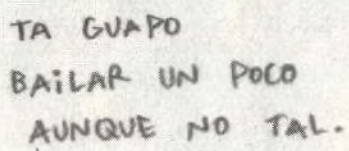 TA GUAPO
BAiLAR UN POCO
AUNQUE NO TAL.